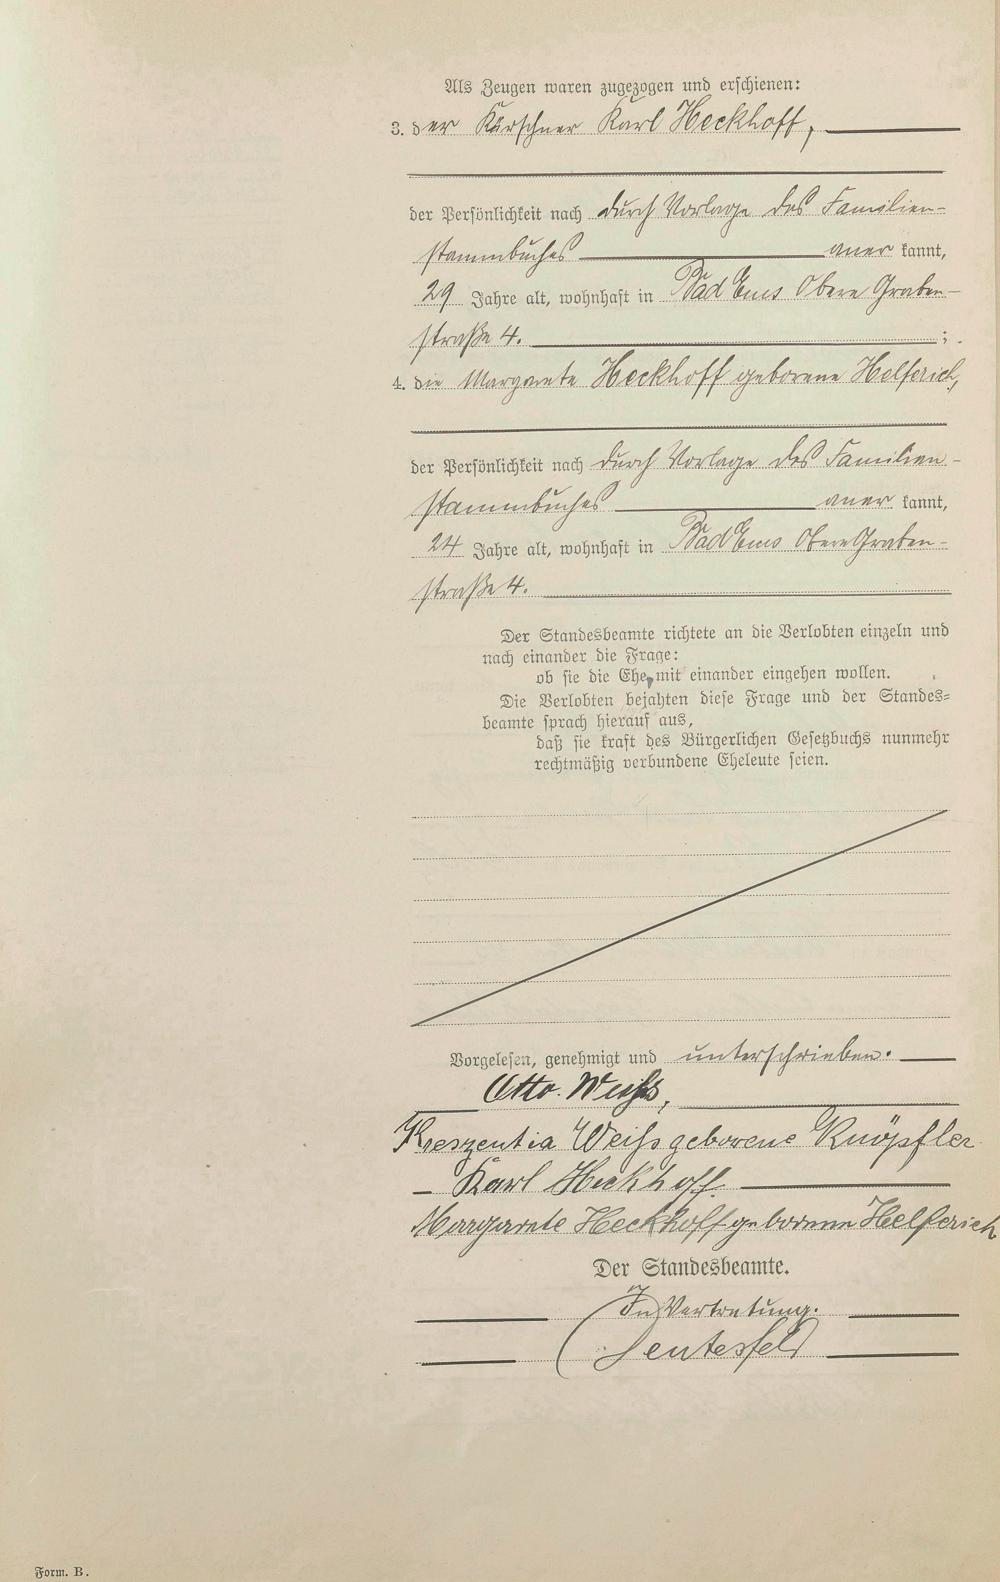 Als Zeugen waren zugezogen und erschienen:
3. der Kürschner Karl Heckhoff,
der Persönlichkeit nach durch Vorlage des Familien-
stammbuches aner kannt,
29 Jahre alt, wohnhaft in Bad Ems Obere Graben-
straße 4. ;
4. die Margarete Heckhoff geborene Helferich,
der Persönlichkeit nach durch Vorlage des Familien-
stammbuches aner kannt,
24 Jahre alt, wohnhaft in Bad Ems Obere Graben-
straße 4.
Der Standesbeamte richtete an die Verlobten einzeln und
nach einander die Frage:
ob sie die Ehe mit einander eingehen wollen.
Die Verlobten bejahten diese Frage und der Standes-
beamte sprach hierauf aus,
daß sie kraft des Bürgerlichen Gesetzbuchs nunmehr
rechtmäßig verbundene Eheleute seien.
Vorgelesen, genehmigt und unterschrieben.
Otto Weiß,
Kreszentia Weiß geborene Knöpfler
Karl Heckhoff.
Margarete Heckhoff geborene Helferich
Der Standesbeamte.
In Vertretung.
Form. B.